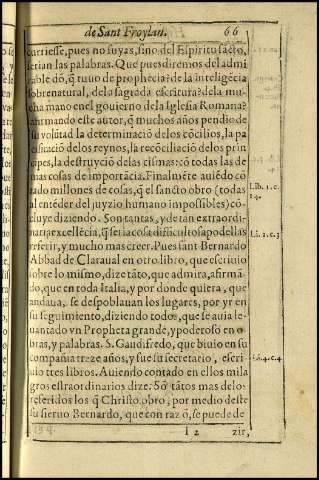 de Sant Froylan. 66
curriesse, pues no suyas, sino del Espiritu sãcto,
serian las palabras. Que pues diremos del admi
rable dõ, q̃ tuuo de prophecia? de la inteligẽcia
sobrenatural, de la sagrada escritura? de la mu
cha mano en el gouierno de la Iglesia Romana?
affirmando este autor, q̃ muchos años pendio de
su volũtad la determinaciõ delos cõcilios, la pa
cificaciõ delos reynos, la recõciliaciõ delos prin
cipes, la destruyciõ delas cismas: cõ todas las de
mas cosas de importãcia. Finalmẽte auiẽdo cõ
tado millones de cosas, q̃ el sancto obro (todas
al entẽder del juyzio humano impossibles) cõ-
cluye diziendo. Son tantas, y de tan extraordi-
naria excellẽcia, q̃ seria cosa dificultosa podellas
referir, y mucho mas creer. Pues sant Bernardo
Abbad de Claraual en otro libro, que escriuio
sobre lo mismo, dize tãto, que admira, afirmã-
do, que en toda Italia, y por donde quiera, que
andaua, se despoblauan los lugares, por yr en
su seguimiento, diziendo todos, que se auia le-
uantado vn Propheta grande, y poderoso en o-
bras, y palabras. S. Gaudifredo, que biuio en su
compañia treze años, y fue su secretario, escri
uio tres libros. Auiendo contado en ellos mila
gros estraordinarios dize. Sõ tãtos mas delos
referidos los q̃ Christo obro, por medio deste
su sieruo Bernardo, que con razõ, se puede de
I 2 zir,
Lib. 1. c.
14.
Li. 2. c. 3
Li. 4. c. 4.